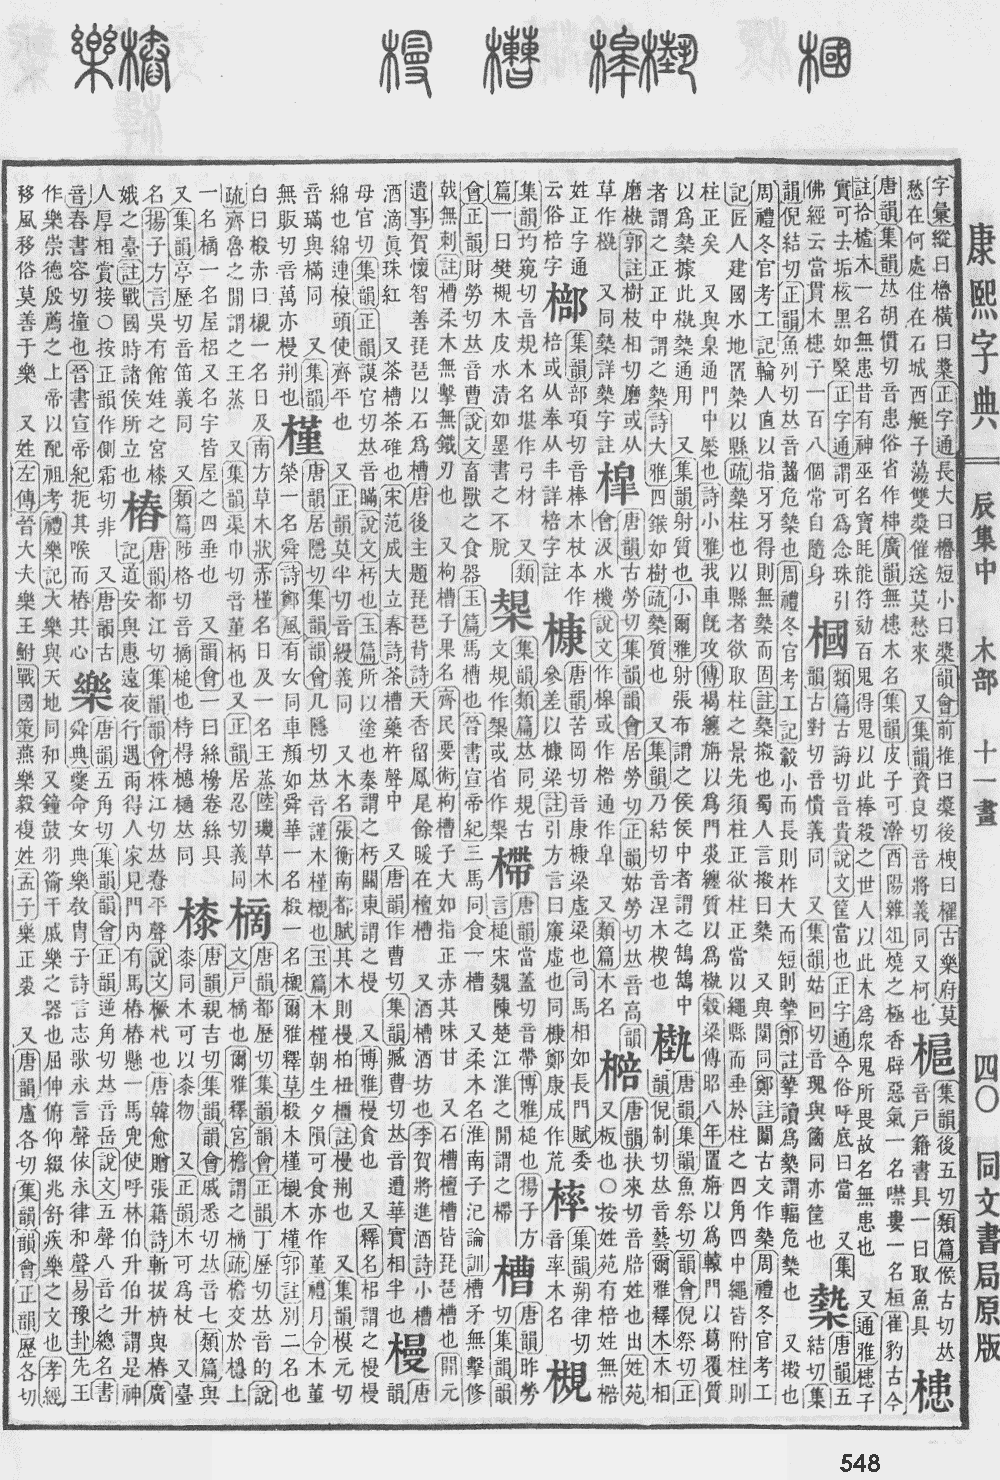 康熙字典 辰集中 木部 十一畫 四〇 同文書局原版
字彙縱曰櫓橫曰槳正字通長大曰櫓短小曰槳韻會前推曰槳後曳曰櫂古樂府莫
愁在何處住在石城西艇子蕩雙槳催送莫愁來 又集韻資良切音將義同又柯也
槴
集韻後五切類篇候古切𠀤
音戸籍書具一曰取魚具
槵
唐韻集韻𠀤胡慣切音患俗省作㮙廣韻無槵木名集韻皮子可澣酉陽雜俎燒之極香辟惡氣一名噤婁一名桓崔豹古今
註拾櫨木一名無患昔有神巫名寶眊能符劾百鬼得鬼以此棒殺之世人以此木爲衆鬼所畏故名無患也 又通雅槵子
實可去垢核黑如正字通謂可爲念珠引
佛經云當貫木槵子一百八個常自隨身
槶
類篇古誨切音貴說文筐當也正字通今俗呼底曰當 又集
韻古對切音憒義同 又集韻姑回切音瑰與簂同亦筐也
槷
唐韻五
結切集
韻倪結切正韻魚列切𠀤音齧危槷也周禮冬官考工記轂小而長則柞大而短則摰鄭註摰讀爲槷謂輻危槷也 又㨷也
周禮冬官考工記輪人直以指牙牙得則無槷而固註槷㨷也蜀人言㨷曰槷 又與闑同鄭註闑古文作槷周禮冬官考工
記匠人建國水地置槷以縣疏槷柱也以縣者欲取柱之景先須柱正欲柱正當以繩縣而垂於柱之四角四中繩皆附柱則
柱正矣 又與臬通門中橜也詩小雅我車旣攻傳褐纏旃以爲門裘纏質以爲槸穀梁傳昭八年置旃以爲轅門以葛覆質
以爲槷據此槸槷通用 又集韻射質也小爾雅射張布謂之侯侯中者謂之鵠鵠中
者謂之正正中謂之槷詩大雅四鍭如樹疏槷質也 又集韻乃結切音涅木楔也
槸
唐韻集韻魚祭切韻會倪祭切正
韻倪制切𠀤音藝爾雅釋木木相
磨槸郭註樹枝相切磨或从
草作 又同槷詳槷字註
槹
唐韻古勞切集韻韻會居勞切正韻姑勞切𠀤音高韻
會汲水機說文作橰或作㮓通作皐 又類篇木名
㯁
唐韻扶來切音陪姓也出姓苑
又板也○按姓苑有棓姓無㯁
姓正字通
云俗棓字
集韻部項切音棒木杖本作
棓或从奉从丰詳棓字註
槺
唐韻苦岡切音康槺梁虛梁也司馬相如長門賦委
參差以槺梁註引方言曰㝩虛也同槺鄭康成作荒
集韻朔律切
音率木名
槻
集韻均窺切音規木名堪作弓材 又類
篇一曰樊槻木皮水清如墨書之不脫
槼
集韻類篇𠀤同規古
文規作槼或省作
㯂
唐韻當蓋切音帶博雅槌也揚子方
言槌宋魏陳楚江淮之閒謂之㯂
槽
唐韻昨勞
切集韻韻
會正韻財勞切𠀤音曹說文畜獸之食器玉篇馬槽也晉書宣帝紀三馬同食一槽 又柔木名淮南子氾論訓槽矛無擊修
戟無刺註槽柔木無擊無鐵刃也 又枸槽子果名齊民要術枸槽子大如指正赤其味甘 又石槽檀槽皆琵琶槽也開元
遺事賀懷智善琵琶以石爲槽唐後主題琵琶背詩天香留鳳尾餘暖在檀槽 又酒槽酒坊也李賀將進酒詩小槽
酒滴眞珠紅 又茶槽茶碓也宋范成大立春詩茶槽藥杵聲中 又唐韻作曹切集韻臧曹切𠀤音遭華實相半也
槾
唐
韻
母官切集韻正韻謨官切𠀤音瞞說文杇也玉篇所以塗也秦謂之杇關東謂之槾 又博雅槾貪也 又釋名梠謂之槾槾
綿也綿連榱頭使齊平也 又正韻莫半切音縵義同 又木名張衡南都賦其木則槾柏杻橿註槾荆也 又集韻模元切
音璊與樠同 又集韻
無販切音萬亦槾荆也
槿
唐韻居隱切集韻韻會几隱切𠀤音謹木槿櫬也玉篇木槿朝生夕隕可食亦作菫禮月令木菫
榮一名舜詩鄭風有女同車顏如舜華一名椵一名櫬爾雅釋草椵木槿櫬木槿郭註別二名也
白曰椵赤曰櫬一名日及南方草木狀赤槿名日及一名王蒸陸璣草木
疏齊魯之閒謂之王蒸 又集韻渠巾切音菫柄也又正韻居忍切義同
樀
唐韻都歷切集韻韻會正韻丁歷切𠀤音的說
文戸樀也爾雅釋宮檐謂之樀疏檐交於檼上
一名樀一名屋梠又名宇皆屋之四垂也 又韻會一曰絲卷絲具
又集韻亭歷切音笛義同 又類篇陟格切音摘槌也㭙棏樴樋𠀤同
㯃
唐韻親吉切集韻韻會戚悉切𠀤音七類篇與
桼同木可以桼物 又正韻木可爲杖 又臺
名揚子方言吳有館娃之宮㯃
娥之臺註戰國時諸侯所立也
樁
唐韻都江切集韻韻會株江切𠀤惷平聲說文橛杙也唐韓愈贈張籍詩斬拔枿與樁廣
記道安與惠遠夜行遇雨得人家見門內有馬樁樁懸一馬兜使呼林伯升伯升謂是神
人厚相賞接○按正韻作側霜切非 又唐韻古
音舂書容切撞也晉書宣帝紀扼其喉而樁其心
樂
唐韻五角切集韻韻會正韻逆角切𠀤音岳說文五聲八音之總名書
舜典夔命女典樂敎冑子詩言志歌永言聲依永律和聲易豫卦先王
作樂崇德殷薦之上帝以配祖考禮樂記大樂與天地同和又鐘鼓羽籥干戚樂之器也屈伸俯仰綴兆舒疾樂之文也孝經
移風移俗莫善于樂 又姓左傳晉大夫樂王鮒戰國策燕樂毅複姓孟子樂正裘 又唐韻盧各切集韻韻會正韻歷各切
548